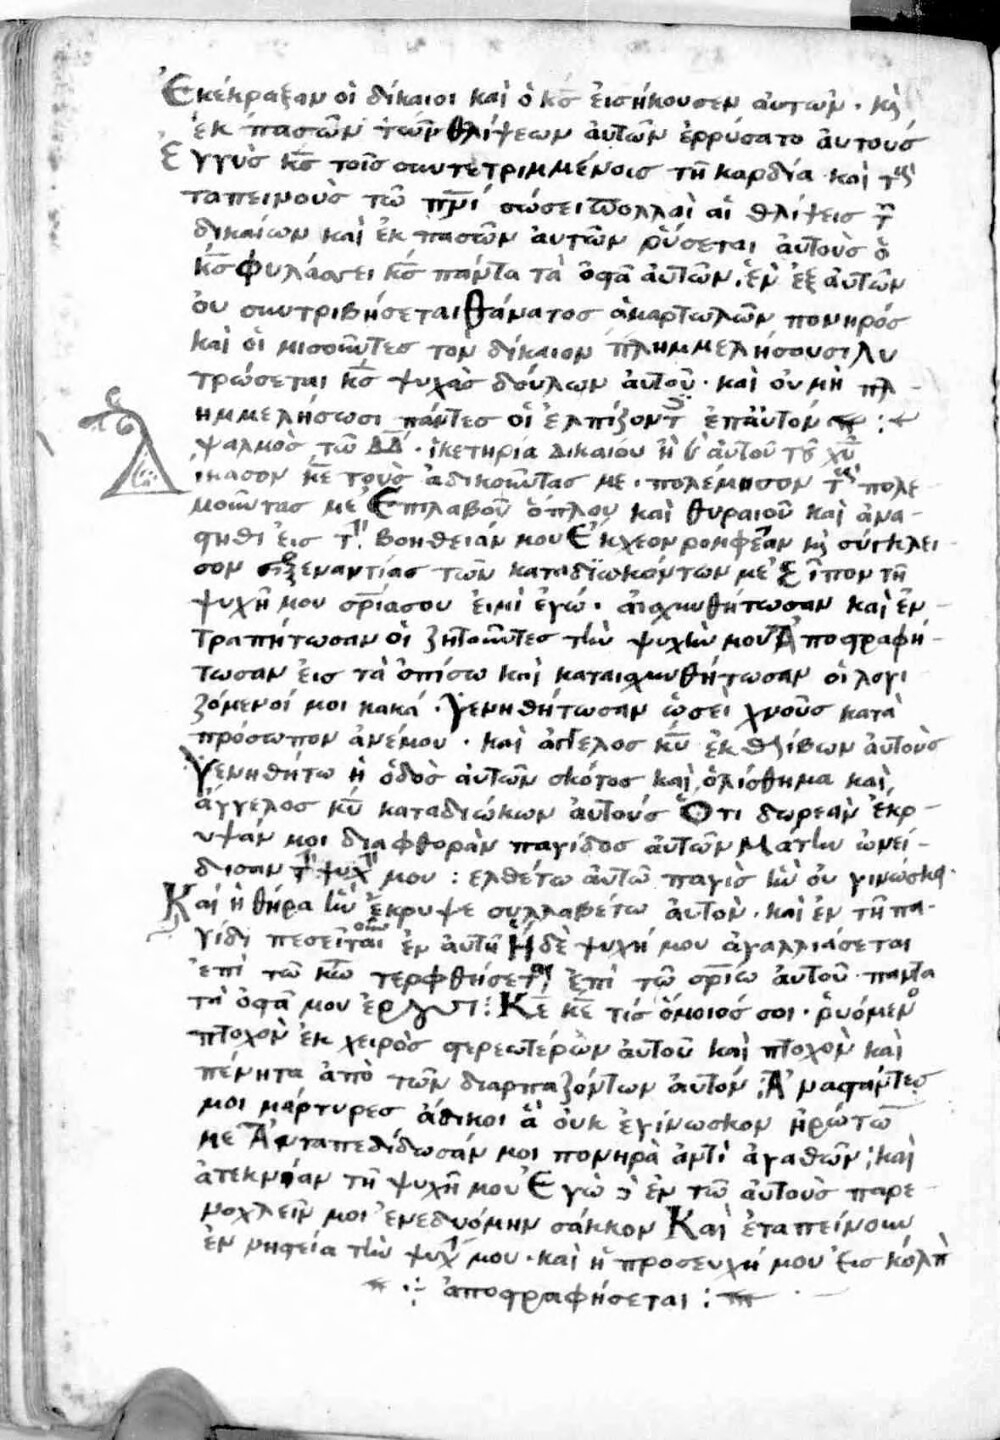 Ἐκέκραξαν οἱ δίκαιοι καὶ ὁ κ̅ς̅ εἰσήκουσεν αὐτῶν · κ̀
ἐκ πασῶν τῶν θλίψεων αὐτῶν ἐρρύσατο αὐτούς
Ἐγγὺς κ̅ς̅ τοῖς συντετριμμένοις τῆ καρδία καὶ τ(οὺς)
ταπεινοὺς τῶ π̅ν̅ι̅ σώσει πολλαὶ αἱ θλίψεις τ῀
δικαίων καὶ ἐκ πασῶν αὐτῶν ῥύσεται αὐτοὺς ὁ
κ̅ς̅ φυλάσσει κ̅ς̅ πάντα τὰ ὀστᾶ αὐτῶν · ἓν ἐξ αὐτῶν
οὐ συντριβήσεται θάνατος ἁμαρτωλῶν πονηρός
καὶ οἱ μισοῦντες τὸν δίκαιον πλημμελήσουσι λυ
τρώσεται κ̅ς̅ ψυχὰς δούλων αὐτοῦ · καὶ οὐ μὴ πλ -
ημμελήσωσι πάντες οἱ ἐλπίζοντ(ες) ἐπ αὐτόν :
ψαλμὸς τῶ Δ̅Α̅Δ̅ · ἱκετηρία δικαίου ἢ ὑ αὐτοῦ τοῦ χ̅υ̅
Δίκασον κ̅ε̅ τοὺς ἀδικοῦντας με · πολέμησον τ(οὺς) πολε -
μοῦντας με Ἐπιλαβοῦ ὅπλου καὶ θυραιοῦ καὶ ἀνα -
στηθι εἰς τ(ὴν) βοηθειάν μου Ἔκχεον ρομφέαν κ̀ σύγκλει -
σον ἐξεναντίας τῶν καταδϊωκόντων με Εἶπον τῆ
ψυχῆ μου σ̅ρ̅ία σου εἰμὶ ἐγώ · αἰσχυνθήτωσαν καὶ ἐν -
τραπήτωσαν οἱ ζητοῦντες τὴν ψυχήν μου Ἀποστραφή -
τωσαν εἰς τὰ ὀπίσω καὶ καταισχυνθήτωσαν οἱ λογι
ζόμενοί μοι κακά · Γενηθήτωσαν ὡσεὶ χνοῦς κατὰ
πρόσωπον ἀνέμου · καὶ ἄγγελος κ̅υ̅ ἐκθλίβων αὐτοὺς
Γενηθήτω ἡ ὁδὸς αὐτῶν σκότος καὶ ὀλίσθημα καὶ
ἄγγελος κ̅υ̅ καταδιώκων αὐτούς Ὅτι δωρεὰν ἔκρ -
υψάν μοι διαφθορὰν παγίδος αὐτῶν Μάτην ὠνεί -
δισαν τ(ὴν) ψυχ(ὴν) μου : ἐλθέτω αὐτῶ παγὶς ἣν οὐ γινώσκει ·
Καὶ ἡ θήρα ἣν ἔκρυψε συλλαβέτω αὐτὸν · καὶ ἐν τῆ πα -
γίδι πεσεῖται ἐν αὐτῆ Ἡ δὲ ψυχή μου ἀγαλλιάσεται
ἐπὶ τῶ κ̅ω̅ τερφθήσεται ἐπὶ τῶ σ̅ρ̅ίω αὐτοῦ · πάντα
τὰ ὀστᾶ μου ἐροῦσι : Κ̅ε̅ κ̅ε̅ τίς ὅμοιός σοι · ῥυόμενο(ς)
πτοχὸν ἐκ χειρὸς στερεωτέρων αὐτοῦ καὶ πτοχὸν καὶ
πένητα ἀπὸ τῶν διαρπαζόντων αὐτόν : Ἀναστάντες
μοι μάρτυρες ἄδικοι ἃ οὐκ ἐγίνωσκον ἠρώτω
με Ἀνταπεδίδωσάν μοι πονηρὰ ἀντὶ ἀγαθῶν ; καὶ
ἀτεκνίαν τῆ ψυχῆ μου Ἐγὼ δὲ ἐν τῶ αὐτοὺς παρε -
νοχλεῖν μοι ἐνεδυόμην σάκκον Καὶ ἐταπείνουν
ἐν νηστεία τὴν ψυχ(ὴν) μου · καὶ ἡ προσευχή μου εἰς κόλπ(ον)
ἀποστραφήσεται :